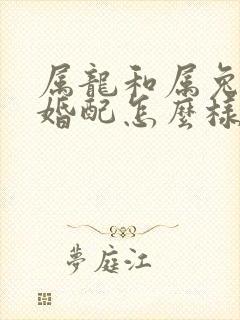 属龍和属兔
婚配怎麼樣
夢庭江